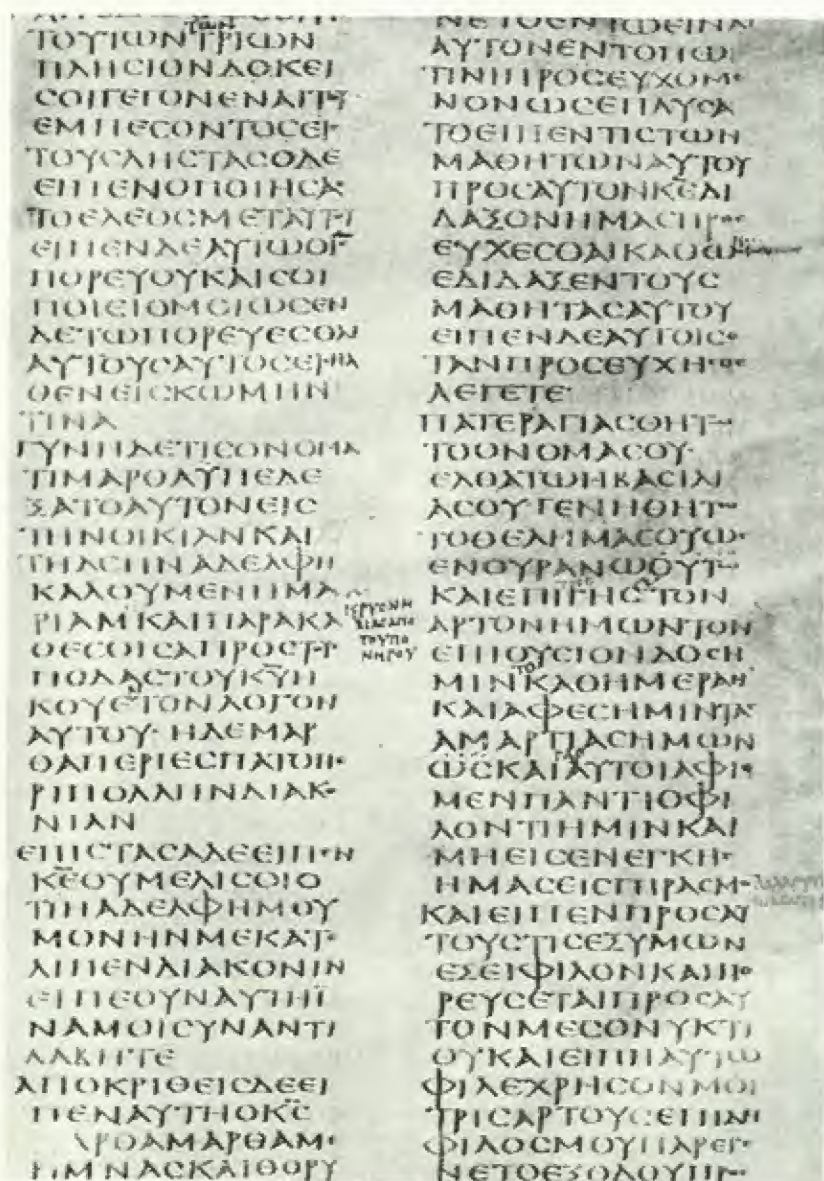 ΤΩΝ
ΤΟΥΤΩΝΤΡΙΩΝ
ΠΛΗCΙΟΝΔΟΚΕΙ
CΟΙΓΕΓΟΝΕΝΑΙΤΟΥ
ΕΜΠΕCΟΝΤΟCΕΙC
ΤΟΥCΛΗCΤΑCΟΔΕ
ΕΙΠΕΝΟΠΟΙΗCΑC
ΤΟΕΛΕΟCΜΕΤΑΥΤΟΥ
ΕΙΠΕΝΔΕΑΥΤΩΟΙC
ΠΟΡΕΥΟΥΚΑΙCΟΙ
ΠΟΙΕΙΟΜΟΙΩCΕΝ
ΔΕΤΩΠΟΡΕΥΕCΘΑΙ
ΑΥΤΟΥCΑΥΤΟCΕΙCΗΛ
ΘΕΝΕΙCΚΩΜΗΝ
ΤΙΝΑ
ΓΥΝΗΔΕΤΙCΟΝΟΜΑ
ΤΙΜΑΡΘΑΫΠΕΔΕ
ΞΑΤΟΑΥΤΟΝΕΙC
ΤΗΝΟΙΚΙΑΝΚΑΙ
ΤΗΔΕΗΝΑΔΕΛΦΗ
ΚΑΛΟΥΜΕΝΗΜΑ
ΡΙΑΜΚΑΙΠΑΡΑΚΑ
ΘΕCΘΙCΑΠΡΟCΤΟΥC
ΠΟΔΑCΤΟΥΚ̅Υ̅Η
ΚΟΥΕΤΟΝΛΟΓΟΝ
ΑΥΤΟΥ·ΗΔΕΜΑΡ
ΘΑΠΕΡΙΕCΠΑΤΟΠΕ
ΡΙΠΟΛΛΗΝΔΙΑΚΟ
ΝΙΑΝ
ΕΠΙCΤΑCΑΔΕΕΙΠΕΝ
Κ̅Ε̅ΟΥΜΕΛΙCΟΙΟ
ΤΙΗΑΔΕΛΦΗΜΟΥ
ΜΟΝΗΝΜΕΚΑΤΕ
ΛΙΠΕΝΔΙΑΚΟΝΙΝ
ΕΙΠΕΟΥΝΑΥΤΗΪ
ΝΑΜΟΙCΥΝΑΝΤΙ
ΛΑΒΗΤΕ
ΑΠΟΚΡΙΘΕΙCΔΕΕΙ
ΠΕΝΑΥΤΗΟΚ̅C̅
ΑΡΘΑΜΑΡΘΑΜΕ
ΡΙΜΝΑCΚΑΙΘΟΡΥ
ΝΕΤΟΕΝΤΩΕΙΝΑΙ
ΑΥΤΟΝΕΝΤΟΠΩ
ΤΙΝΙΠΡΟCΕΥΧΟΜΕ
ΝΟΝΩCΕΠΑΥCΑ
ΤΟΕΙΠΕΝΤΙCΤΩΝ
ΜΑΘΗΤΩΝΑΥΤΟΥ
ΠΡΟCΑΥΤΟΝΚ̅Ε̅ΔΙ
ΔΑΞΟΝΗΜΑCΠΡΟC
ΕΥΧΕCΘΑΙΚΑΘΩC
ΕΔΙΔΑΞΕΝΤΟΥC
ΜΑΘΗΤΑCΑΥΤΟΥ
ΕΙΠΕΝΔΕΑΥΤΟΙCΟ
ΤΑΝΠΡΟCΕΥΧΗCΘΕ
ΛΕΓΕΤΕ·
ΠΑΤΕΡΑΓΙΑCΘΗΤΩ
ΤΟΟΝΟΜΑCΟΥ·
ΕΛΘΑΤΩΗΒΑCΙΛΙ
ΑCΟΥΓΕΝΗΘΗΤΩ
ΤΟΘΕΛΗΜΑCΟΥΩC
ΕΝΟΥΡΑΝΩΟΥΤΩ
ΚΑΙΕΠΙΓΗCΤΟΝ
ΙΕΡΥCΑΗ
ΑΡΤΟΝΗΜΩΝΤΟΝ
ΤΟΥΠΟ
ΝΗΡΟΥ
ΕΠΙΟΥCΙΟΝΔΟCΗ
ΤΟ
ΜΙΝΚΑΘΗΜΕΡΑΝ
ΚΑΙΑΦΕCΗΜΙΝΤΑC
ΑΜΑΡΤΙΑCΗΜΩΝ
ΩCΚΑΙΑΥΤΟΙΑΦΙΟ
ΜΕΝΠΑΝΤΙΟΦΙ
ΛΟΝΤΙΗΜΙΝΚΑΙ
ΜΗΕΙCΕΝΕΓΚΗC
ΗΜΑCΕΙCΠΙΡΑCΜΟ
ΚΑΙΕΙΠΕΝΠΡΟCΑΥ
ΤΟΥCΤΙCΕΞΥΜΩΝ
ΕΞΕΙΦΙΛΟΝΚΑΙΠΟ
ΡΕΥCΕΤΑΙΠΡΟCΑΥ
ΤΟΝΜΕCΟΝΥΚΤΙ
ΟΥΚΑΙΕΙΠΗΑΥΤΩ
ΦΙΛΕΧΡΗCΟΝΜΟΙ
ΤΡΙCΑΡΤΟΥCΕΠΙΔΗ
ΦΙΛΟCΜΟΥΠΑΡΕΓΕ
ΝΕΤΟΕΞΟΔΟΥΠΡΟC